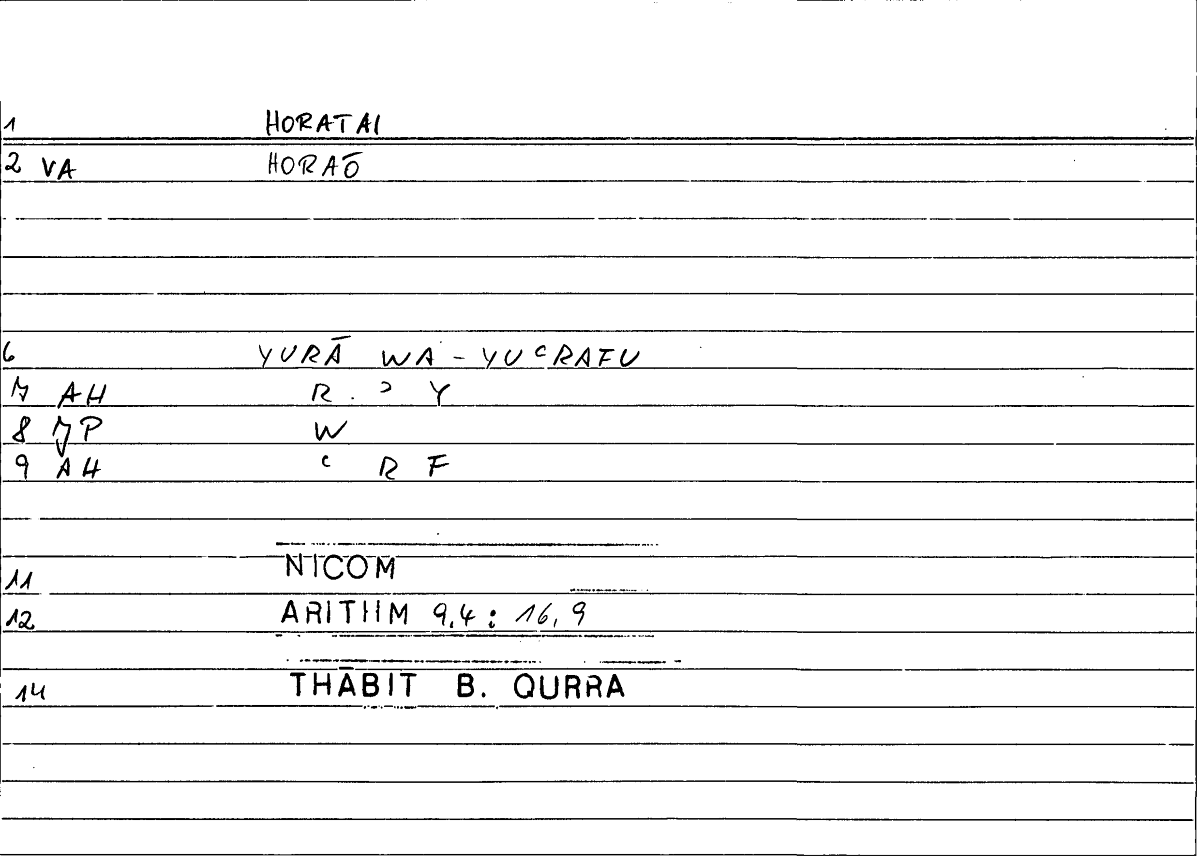 1 HORATAI
2 VA HORAŌ
6 YURĀ WA-YUᶜRAFU
7 AH R ᵓ Y
8 JP W
9 AH ᶜ R F
11 NICOM
12 ARITHM 9,4 : 16,9
14 THĀBIT B. QURRA